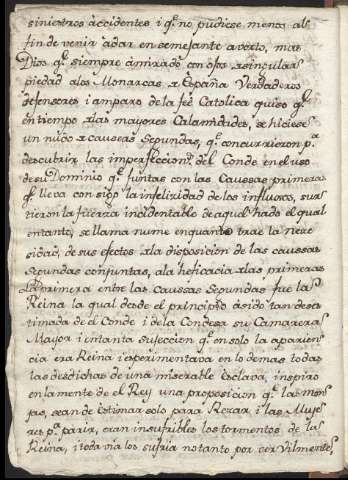 siniestros accidentes i q.e no pudiese menos al
fin de venir àdar en semejante averto, mas
Dios q.e siempre à mirado con ojos a singular
piedad alos Monarcas a España Verdaderos
defensores i amparo de la feè Catolica quiso q.e
en tiempo alas mayores Calamidades, se hiciese
un nudo a caussas Segundas, q.e concurrieron p.a
descubrir las imperfeccion.s del Conde en el uso
de su Dominio q.e juntas con las Caussas primeras
q.e lleva consigo la infelizidad de los influxos, sur
tieron la fuerza inevidentable de aquel hado el qual
entanto, se llama nume enquanto trae la nece
sidad, de sus efectos ala disposicion de las caussas
segundas conjuntas, ala heficacia alas primeras
La primera entre las Caussas Segundas fue la
Reina la qual desde el principio àsido tan deses
timada de el Conde i dela Condesa su Camarera
Mayor i entanta sujeccion q.e en solo la aparien
cia era Reina i esperimentava en lo demas todas
las desdichas de una miserable Esclava, inspiro
en la mente de el Rey una proposicion q.e las Mon
jas, sean de estimar solo para Rezar i las Muje
res p.a parir, eran insufribles los tormentos de la
Reina, i toda via los sufria no tanto por ser Vilmente